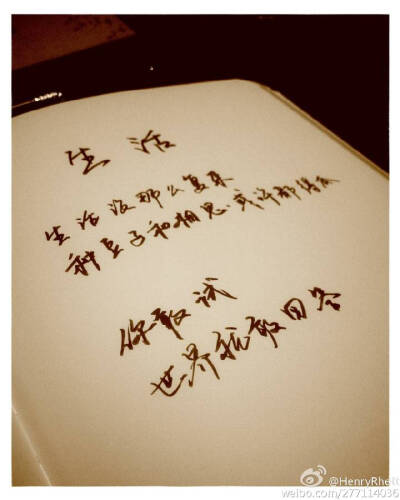 生活
生活没那么复杂
种豆子和相思或许都得瓜
你敢试
世界就敢回答
@HenryRhett
weibo.com/277114036